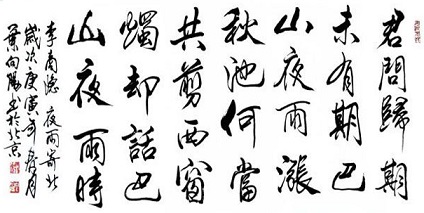 君問歸期
未有期巴
山夜雨漲
秋池何當
共剪西窗
燭却話巴
山夜雨時
李商隱 夜雨寄北
歲次庚寅年冬月
葉向陽書於北京